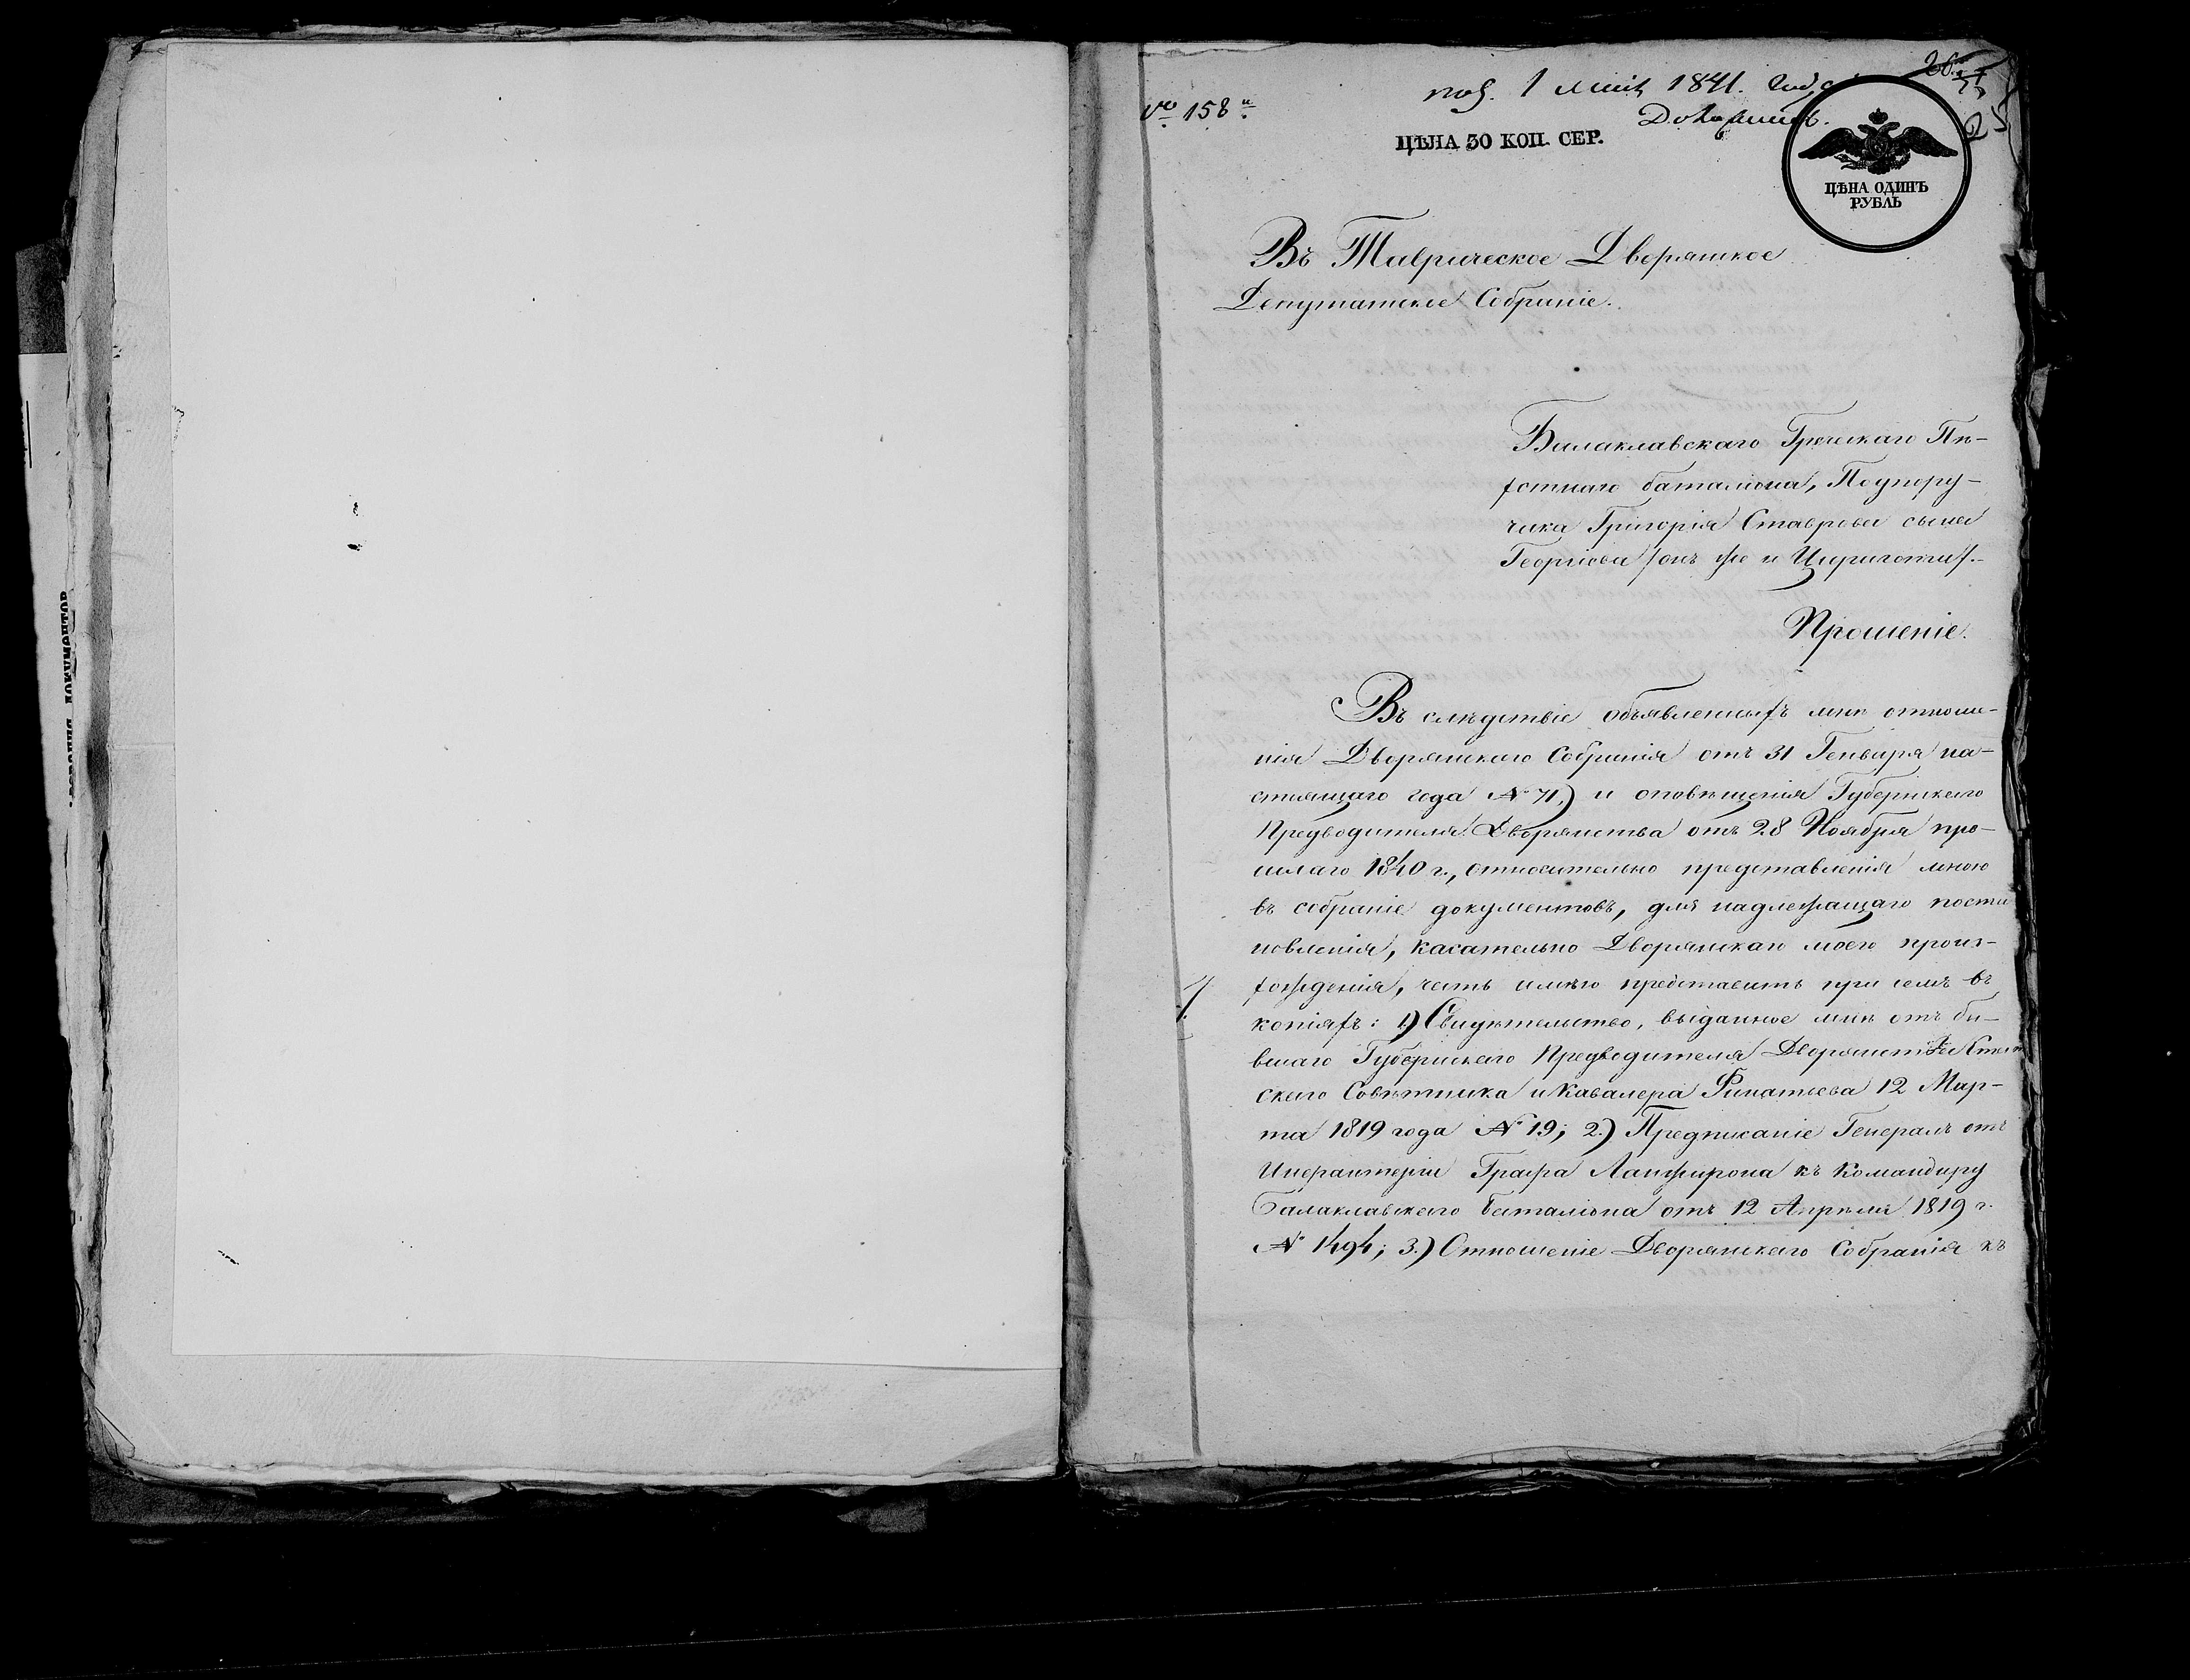 № 158
1841. года
ЦѢНА 30 КОП. СЕР.
ЦѢНА ОДИНЪ
РУБЛЬ
Въ Таврическое Дворянское
Депутатское Собраніе.
Балаклавскаго Греческаго Пѣ-
хотнаго баталіона, Подпору-
чика Григорія Ставрова сына
Георгіева /онъ же и Цириготи/.-
Прошеніе.
Въ слѣдствіе объявленныхъ мнѣ отноше-
нія Дворянскаго Собранія отъ 31 Генваря на-
стоящаго года № 71,) и оповѣщенія Губернскаго
Предводителя Дворянства отъ 28 Ноября про-
шлаго 1840 г., относительно представленія мною
въ собраніе документовъ, для надлежащаго поста
новленія, касательно Дворянскаго моего проис-
хожденія, честь имѣю представить при семъ въ
копіяхъ: 1) Свидѣтельство, выданное мнѣ отъ бы-
вшаго Губернскаго Предводителя Дворянства Стат
скаго Совѣтника и Кавалера Финатьева 12 Мар-
та 1819 года № 19; 2.) Предписаніе Генералъ отъ
Инфантеріи Графа Ланжирона къ Командиру
Балаклавскаго баталіона отъ 12 Апрѣля 1819 г.
№ 1494; 3.) Отношеніе Дворянскаго Собранія къ